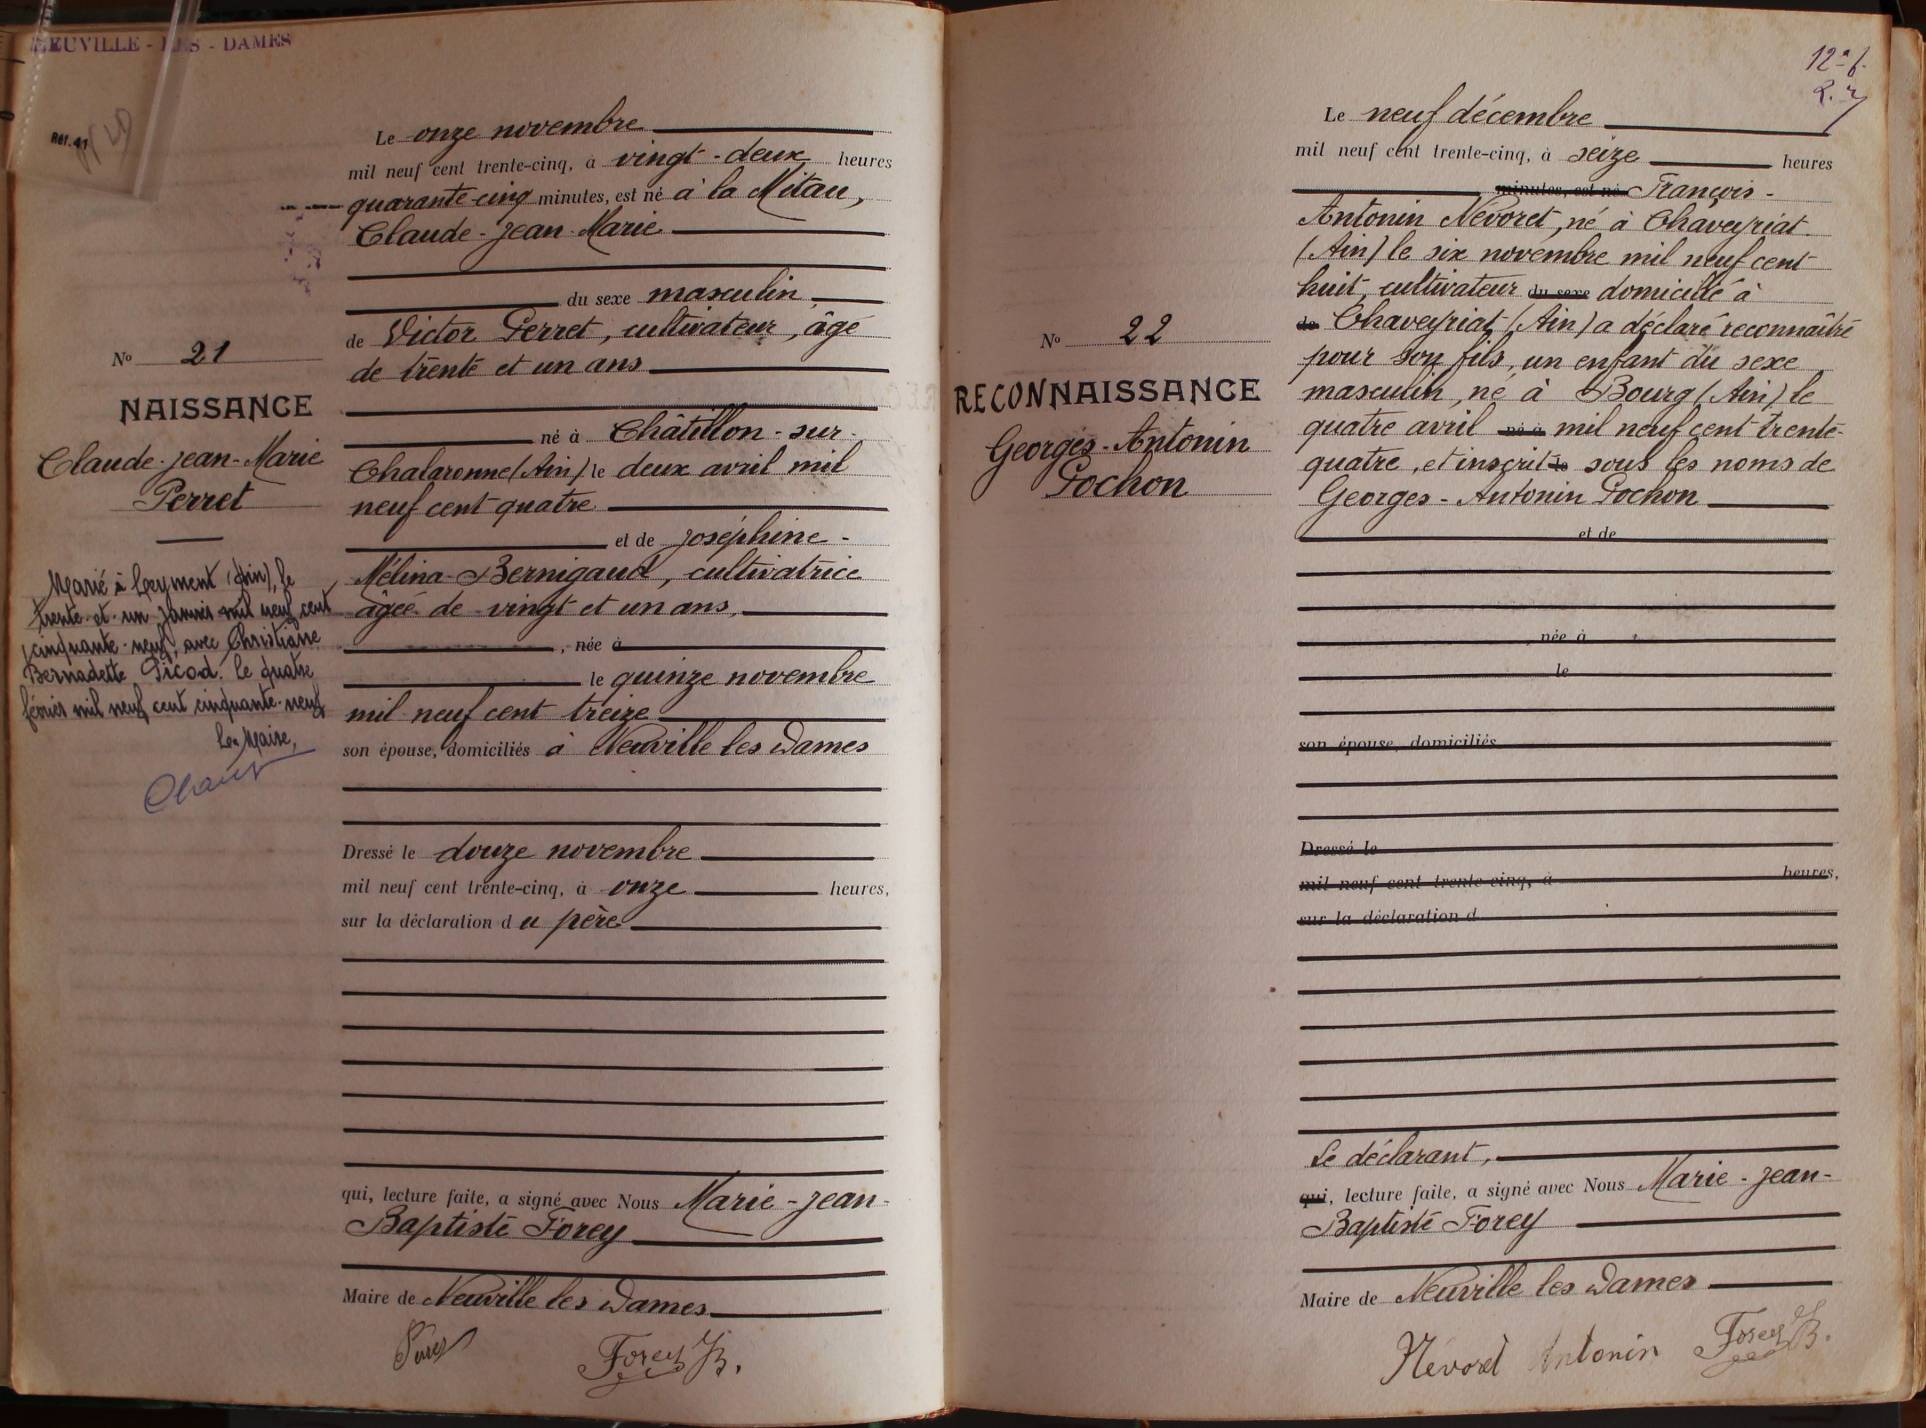 NEUVILLE - LES - DAMES
Réf. 41
Le onze novembre
mil neuf cent trente-cinq, à vingt-deux heures
quarante-cinq minutes, est né à la Mitau,
Claude-Jean-Marie
du sexe masculin
de Victor Perret, cultivateur, âgé
de trente et un ans
né à Châtillon-sur-
Chalaronne (Ain) le deux avril mil
neuf cent quatre
et de Joséphine-
Mélina Bernigaud, cultivatrice
âgée de vingt et un ans,
, née à
le quinze novembre
mil neuf cent treize
son épouse, domiciliés à Neuville les Dames
Dressé le douze novembre
mil neuf cent trente-cinq, à onze heures,
sur la déclaration du père
qui, lecture faite, a signé avec Nous Marie-Jean-
Baptiste Forey
Maire de Neuville les Dames
Forey JB.
No 21
NAISSANCE
Claude-Jean-Marie
Perret
Marié à Leyment (Ain), le
trente-et-un janvier mil neuf cent
cinquante-neuf, avec Christiane
Bernadette Picod. le quatre
février mil neuf cent cinquante-neuf
Le Maire,
12e f.
Le neuf décembre
mil neuf cent trente-cinq, à seize heures
minutes, est né François-
Antonin Névoret, né à Chaveyriat
(Ain) le six novembre mil neuf cent
huit, cultivateur du sexe domicilié à
de Chaveyriat (Ain) a déclaré reconnaître
pour son fils, un enfant du sexe
masculin, né à Bourg (Ain) le
quatre avril né à mil neuf cent trente-
quatre, et inscrit le sous les noms de
Georges-Antonin Pochon
et de
née à
le
son épouse, domiciliés
Dressé le
mil neuf cent trente-cinq, à heures,
sur la déclaration d
Le déclarant,
qui, lecture faite, a signé avec Nous Marie-Jean-
Baptiste Forey
Maire de Neuville les Dames
Névoret Antonin Forey JB.
No 22
RECONNAISSANCE
Georges-Antonin
Pochon